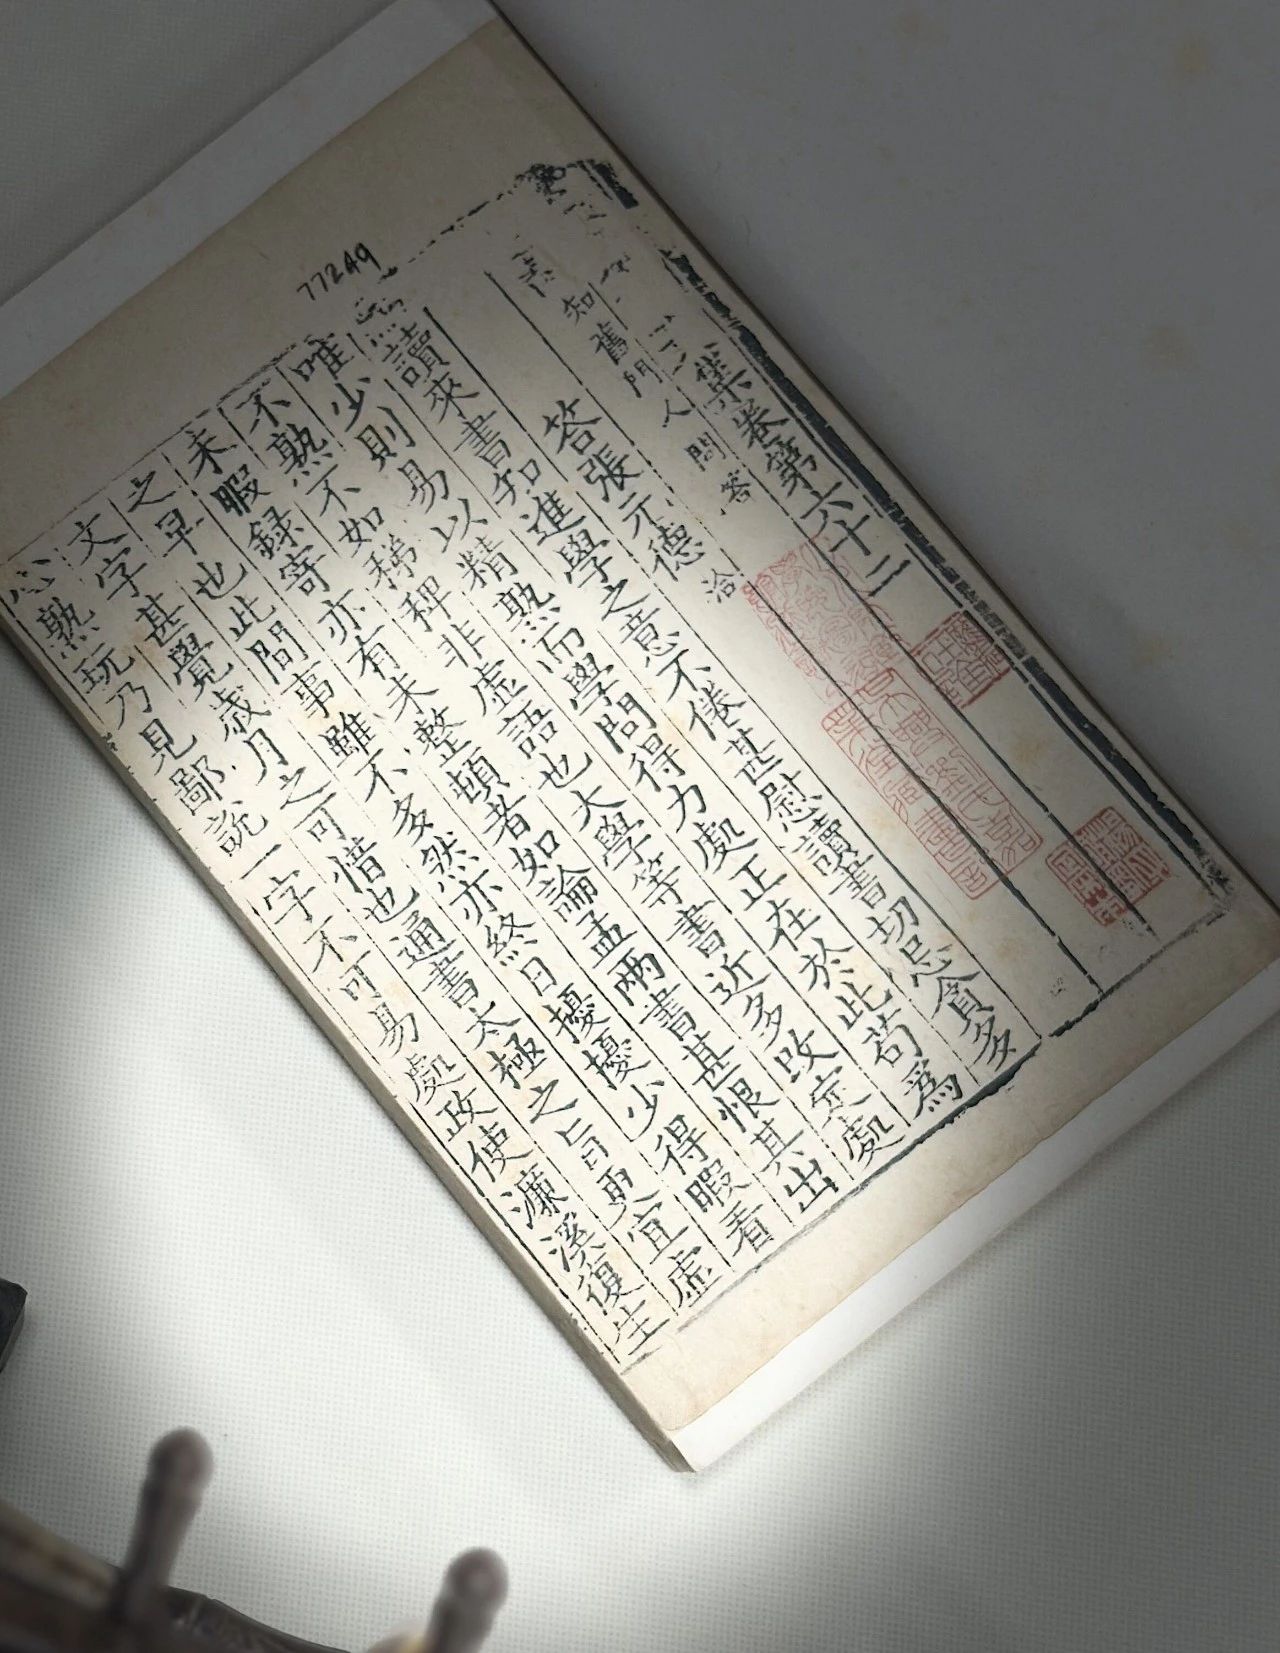 77249
集卷第六十二
知舊門人問答
答張元德 洽
讀來書知進學之意不倦甚慰讀書切忌貪多
唯少則易以精熟而學問得力處正在於此苟爲
不熟不如稊稗非虛語也大學等書近多改定處
未暇録寄亦有未整頓者如論孟兩書甚恨其出
之早也此間事雖不多然亦終日擾擾少得暇看
文字甚覺歲月之可惜也通書太極之旨更宜虛
心熟玩乃見鄙說一字不可易處政使濂溪復生